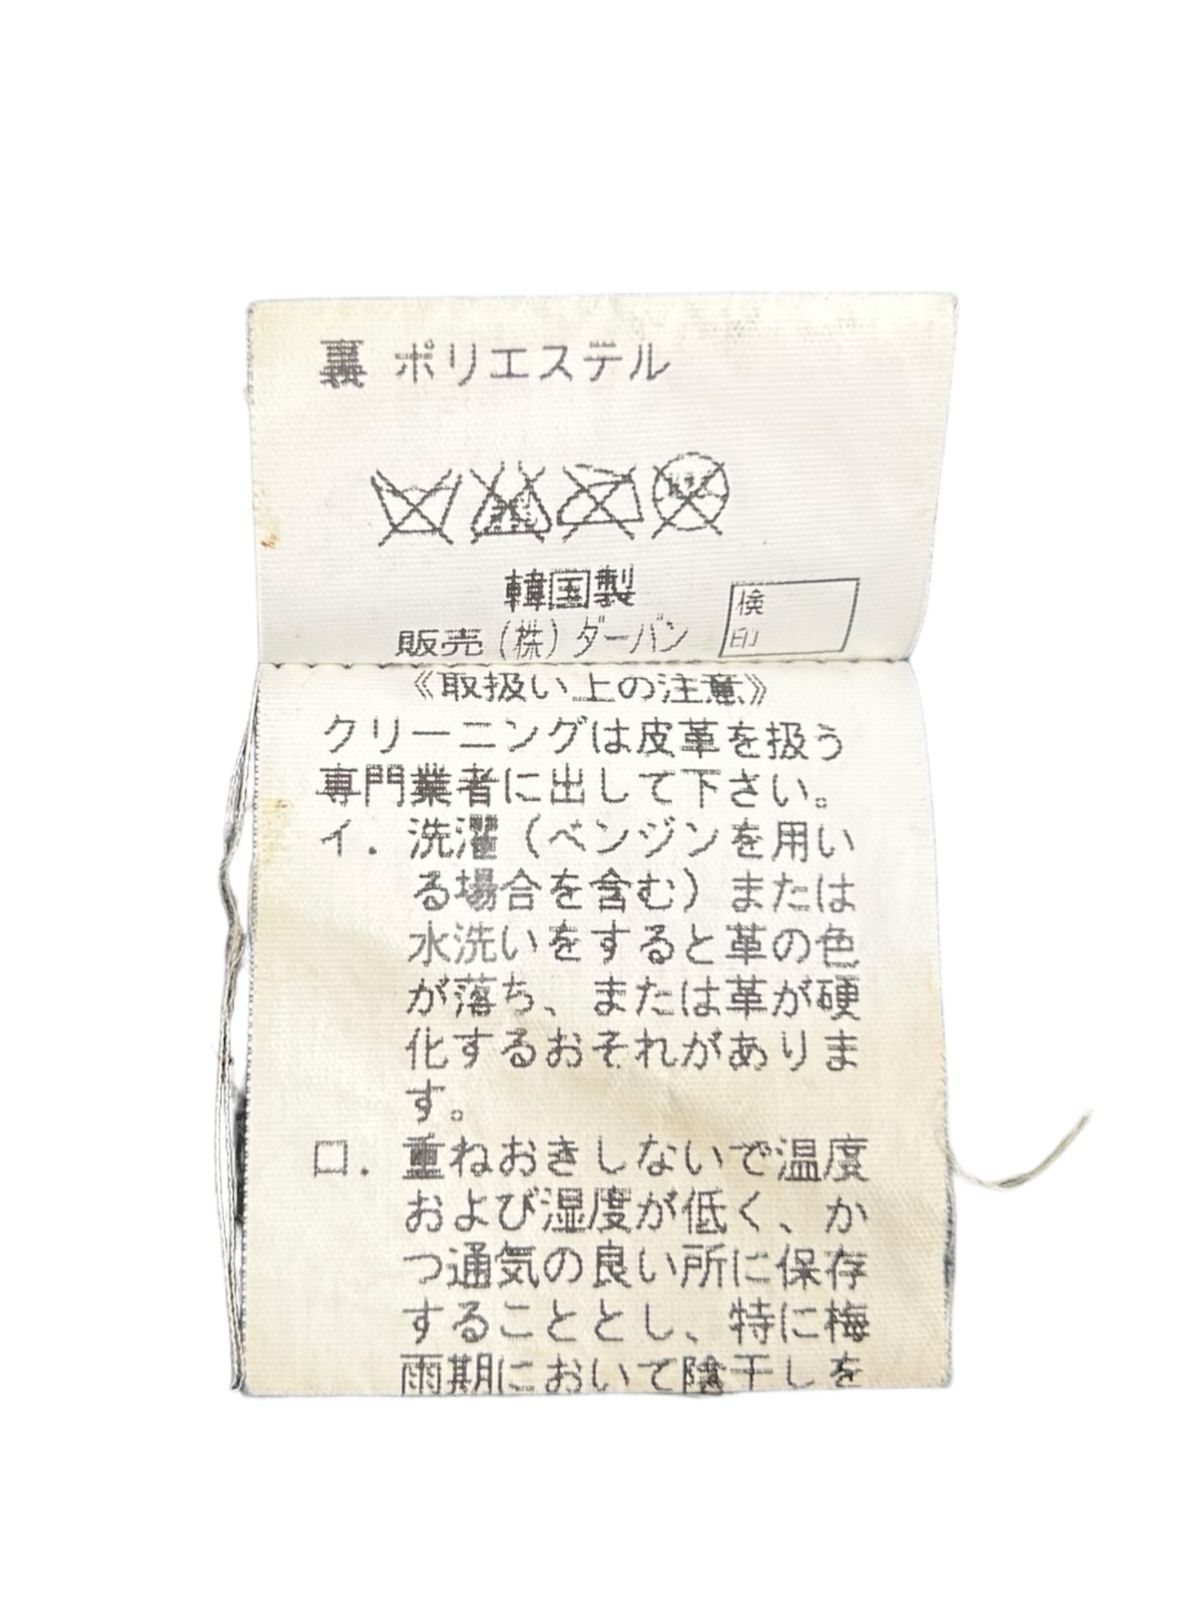 裏 ポリエステル
韓国製
販売(株)ダーバン
検
印
《取扱い上の注意》
クリーニングは皮革を扱う
専門業者に出して下さい。
イ. 洗濯(ベンジンを用い
る場合を含む)または
水洗いをすると革の色
が落ち、または革が硬
化するおそれがありま
す。
ロ. 重ねおきしないで温度
および湿度が低く、か
つ通気の良い所に保存
することとし、特に梅
雨期において陰干しを